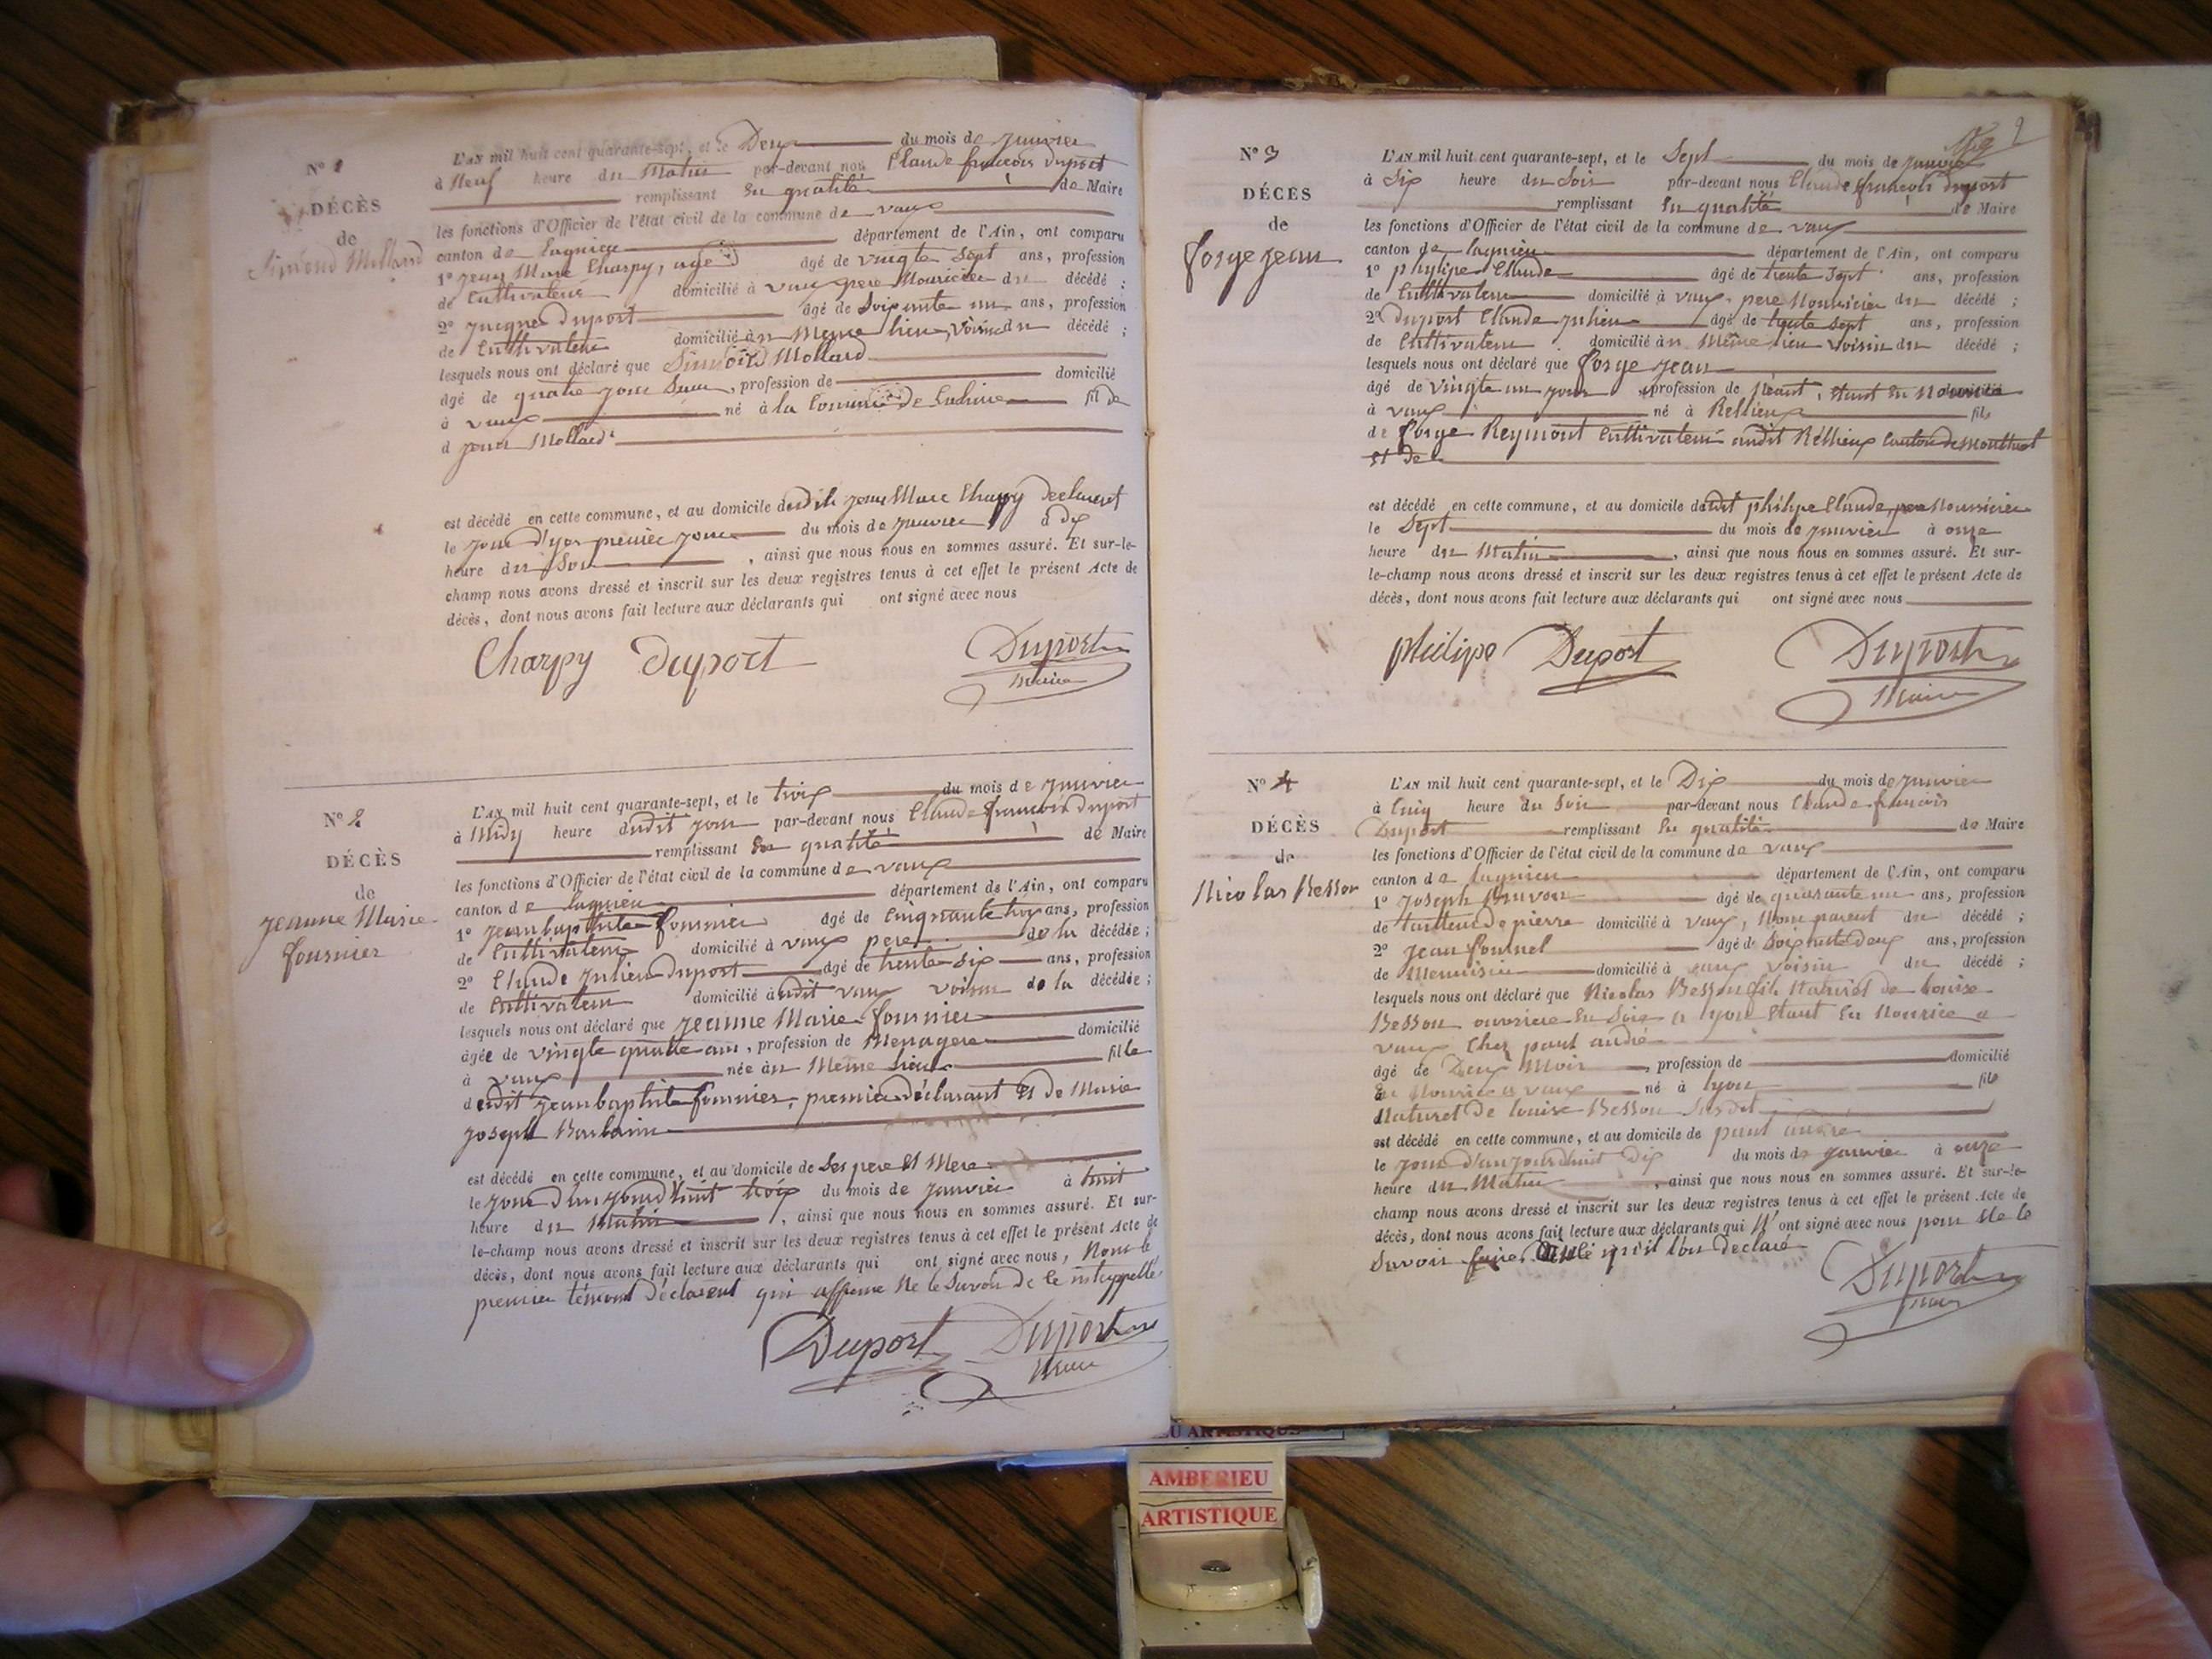 N° 1
DÉCÈS
de
Mollard
L'AN mil huit cent quarante-sept, et le Deux du mois de janvier
à Neuf heure du Matin par-devant nou Claude françois Duport
remplissant En qualité de Maire
les fonctions d'Officier de l'état civil de la commune de vaux
canton de Lagnieu département de l'Ain, ont comparu
1° jean Marc Charpy, agé âgé de vingte Sept ans, profession
de Cultivateur domicilié à vaux pere Nouricier du décédé ;
2° duport âgé de Soixante un ans, profession
de Cultivateur domicilié au Meme lieu, Voisin du décédé ;
lesquels nous ont déclaré que Mollard
âgé de quatre jour , profession de domicilié
à vaux né à la Commune de fil de
d Mollard
est décédé en cette commune, et au domicile dudit jean Marc Charpy declarent
le jour d'yer premier jour du mois de janvier à dix
heure du Soir , ainsi que nous nous en sommes assuré. Et sur-le-
champ nous avons dressé et inscrit sur les deux registres tenus à cet effet le présent Acte de
décès, dont nous avons fait lecture aux déclarants qui ont signé avec nous
Charpy Duport Duport
Maire
N° 2
DÉCÈS
de
jeanne Marie
fournier
L'AN mil huit cent quarante-sept, et le trois du mois de janvier
à Midy heure dudit jour par-devant nous Claude françois Duport
remplissant En qualité de Maire
les fonctions d'Officier de l'état civil de la commune de vaux
canton de lagnieu département de l'Ain, ont comparu
1° jean baptiste fournier âgé de Cinquante trois ans, profession
de Cultivateur domicilié à vaux pere de la décédée ;
2° Claude julien Duport âgé de trente Six ans, profession
de Cultivateur domicilié audit vaux voisin de la décédée ;
lesquels nous ont déclaré que jeanne Marie fournier
âgée de vingte quatre ans, profession de Menagere domicilié
à vaux née au Même Lieu fille
dudit jean baptiste fournier, premier déclarant Et de Marie
joseph
est décédé en cette commune, et au domicile de Ses pere Et Mere
le jour d'aujourd'huit trois du mois de janvier à huit
heure du Matin , ainsi que nous nous en sommes assuré. Et sur-
le-champ nous avons dressé et inscrit sur les deux registres tenus à cet effet le présent Acte de
décès, dont nous avons fait lecture aux déclarants qui ont signé avec nous, Non le
premier témoint déclarent qui affirme Ne le Savoir de ce
Duport Duport
Maire
2
N° 3
DÉCÈS
de
forge jean
L'AN mil huit cent quarante-sept, et le Sept du mois de janvier
à Six heure du Soir par-devant nous Claude françois Duport
remplissant En qualité de Maire
les fonctions d'Officier de l'état civil de la commune de vaux
canton de lagnieu département de l'Ain, ont comparu
1° philipe Claude âgé de trente Sept ans, profession
de Cultivateur domicilié à vaux pere Nourricier du décédé ;
2° duport Claude julien âgé de trente Sept ans, profession
de Cultivateur domicilié au Même lieu Voisin du décédé ;
lesquels nous ont déclaré que forge jean
âgé de vingte un jour , profession de Néant, étant En Nourrice
à vaux né à Rellieux fils
de forge Reymont Cultivateur audit Réllieux Canton de Montluel
et de
est décédé en cette commune, et au domicile dudit philipe Claude, pere Nourricier
le Sept du mois de janvier à onze
heure du Matin , ainsi que nous nous en sommes assuré. Et sur-
le-champ nous avons dressé et inscrit sur les deux registres tenus à cet effet le présent Acte de
décès, dont nous avons fait lecture aux déclarants qui ont signé avec nous
philipe Duport Duport
Maire
N° 4
DÉCÈS
de
Nicolas Besson
L'AN mil huit cent quarante-sept, et le Dix du mois de janvier
à Cinq heure du Soir par-devant nous Claude françois
Duport remplissant En qualité de Maire
les fonctions d'Officier de l'état civil de la commune de vaux
canton de Lagnieu département de l'Ain, ont comparu
1° joseph âgé de quarante un ans, profession
de tailleur de pierre domicilié à vaux, Non parent du décédé ;
2° jean fournel âgé de Soixante deux ans, profession
de Menuisier domicilié à vaux voisin du décédé ;
lesquels nous ont déclaré que Nicolas Besson fils Naturel de Louise
Besson ouvriere En Soie a lyon Etant En Nourice a
vaux Chez paul andré
âgé de Deux Mois , profession de domicilié
En Nourice a vaux né à lyon fils
Naturel de Louise Besson Susdit
est décédé en cette commune, et au domicile de paul andré
le jour d'aujourdhuit Dix du mois de janvier à onze
heure du Matin , ainsi que nous nous en sommes assuré. Et sur-le-
champ nous avons dressé et inscrit sur les deux registres tenus à cet effet le présent Acte de
décès, dont nous avons fait lecture aux déclarants qui N' ont signé avec nous pour Ne le
Savoir faire qu'il l'on declaré
Duport
Maire
AMBERIEU
ARTISTIQUE